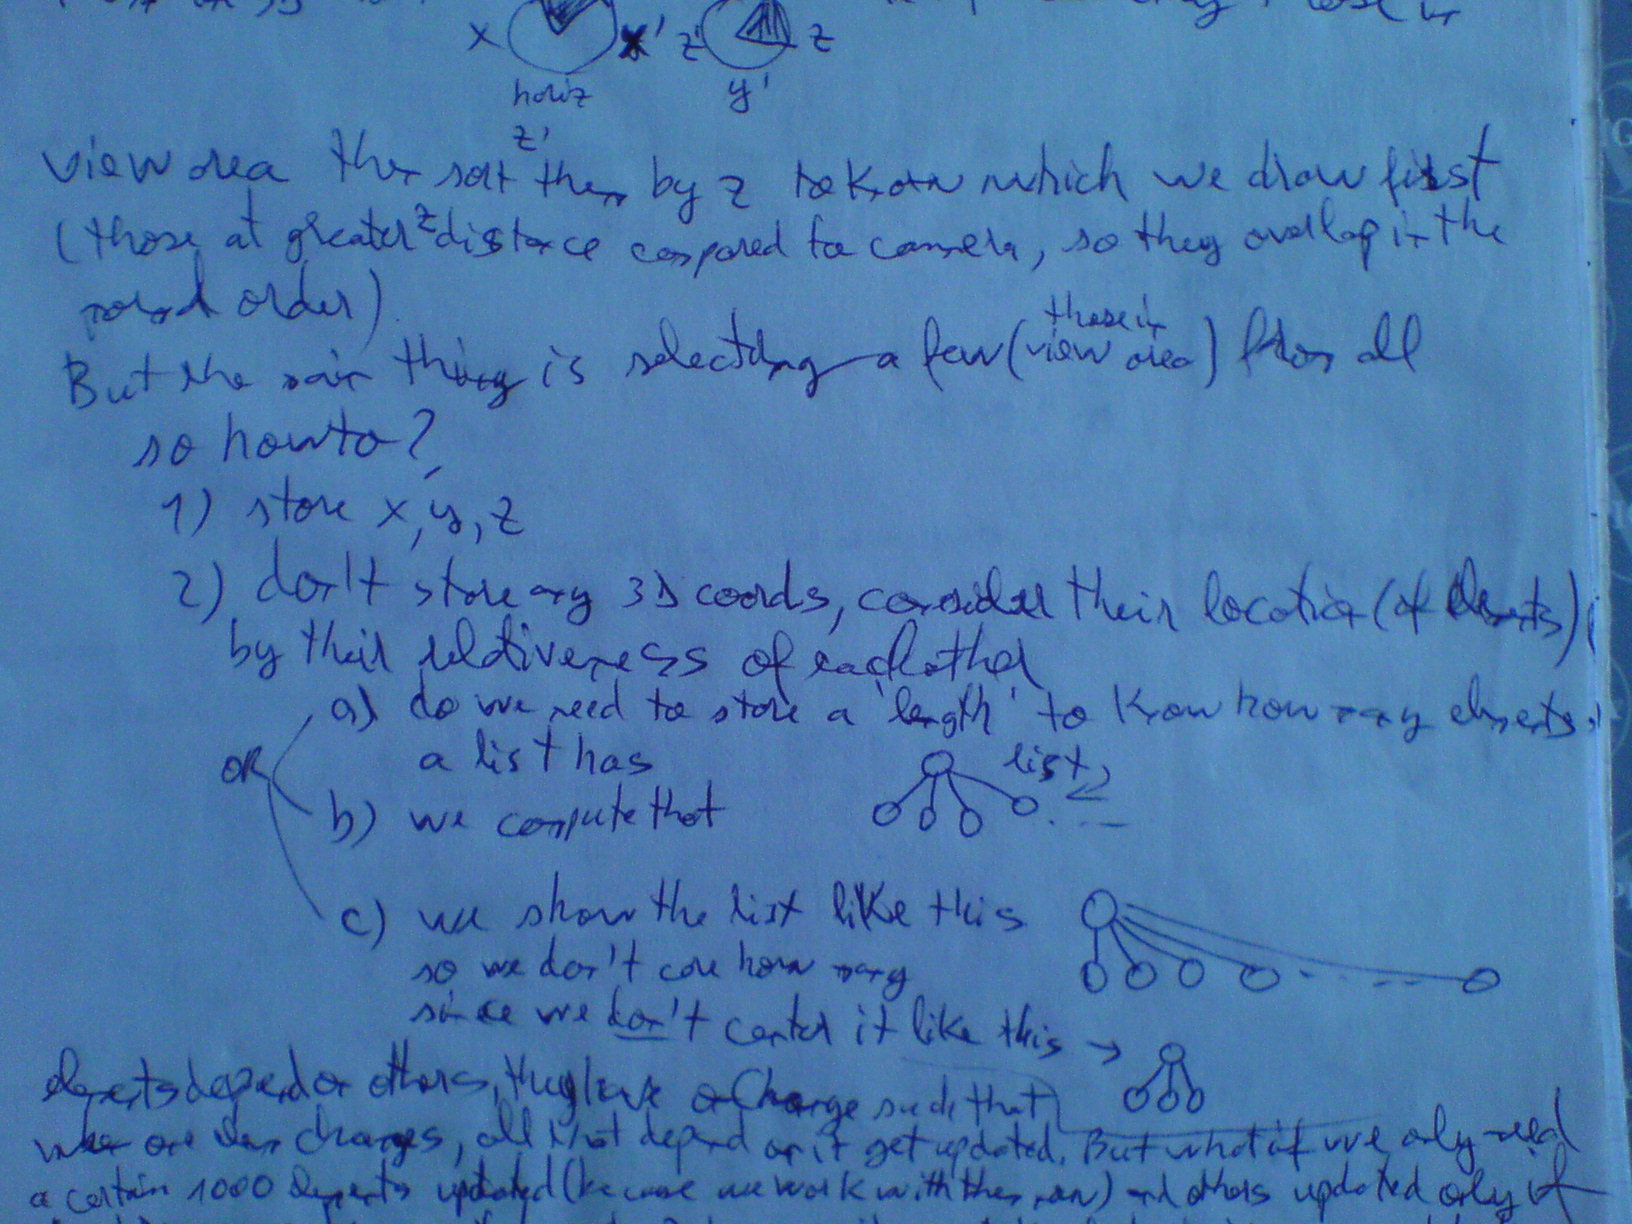 x x' z' z
horiz y'
z'
view area then sort them by z to know which we draw first
(those at greater z distance compared to camera, so they overlap in the
order)
But the main thing is selecting a few (those in view area) from all
so how to?
1) store x, y, z
2) don't store any 3D coords, consider their location (of elements)
by their relativeness of each other
a) do we need to store a 'length' to know how many elements
OR a list has list
b) we compute that
c) we show the list like this
so we don't care how many
since we don't center it like this →
elements depend on others, they have onChange such that
when one item changes, all that depend on it get updated. But what if we only need
a certain 1000 elements updated (because we work with them now) and others updated only if